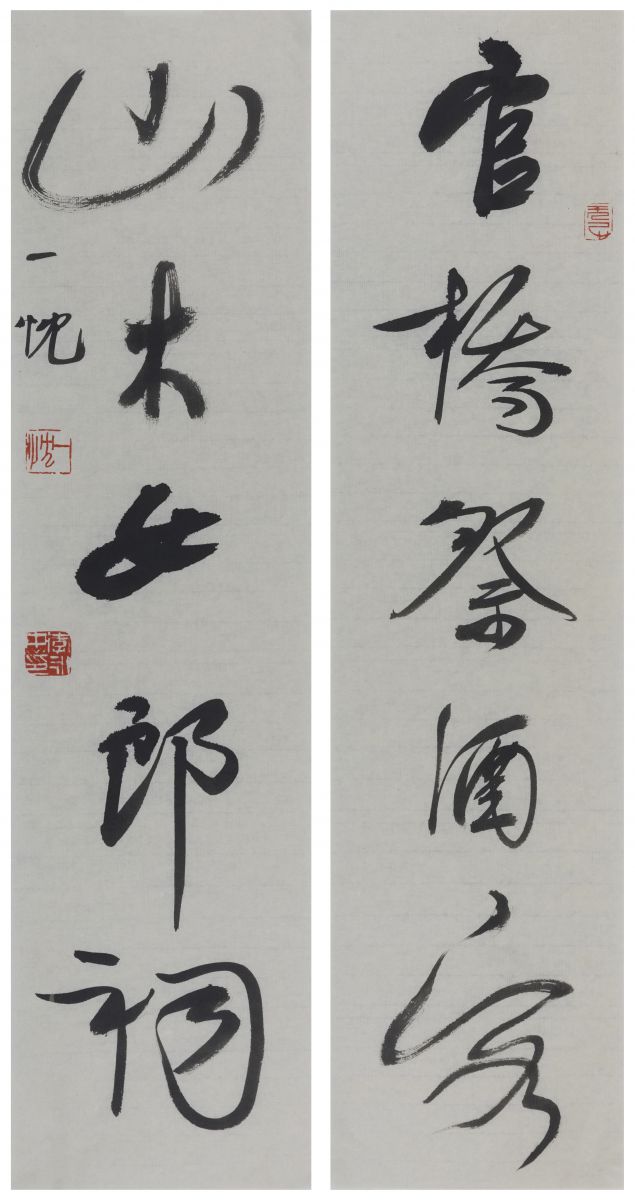 官橋祭酒客
山木女郎祠
一忱